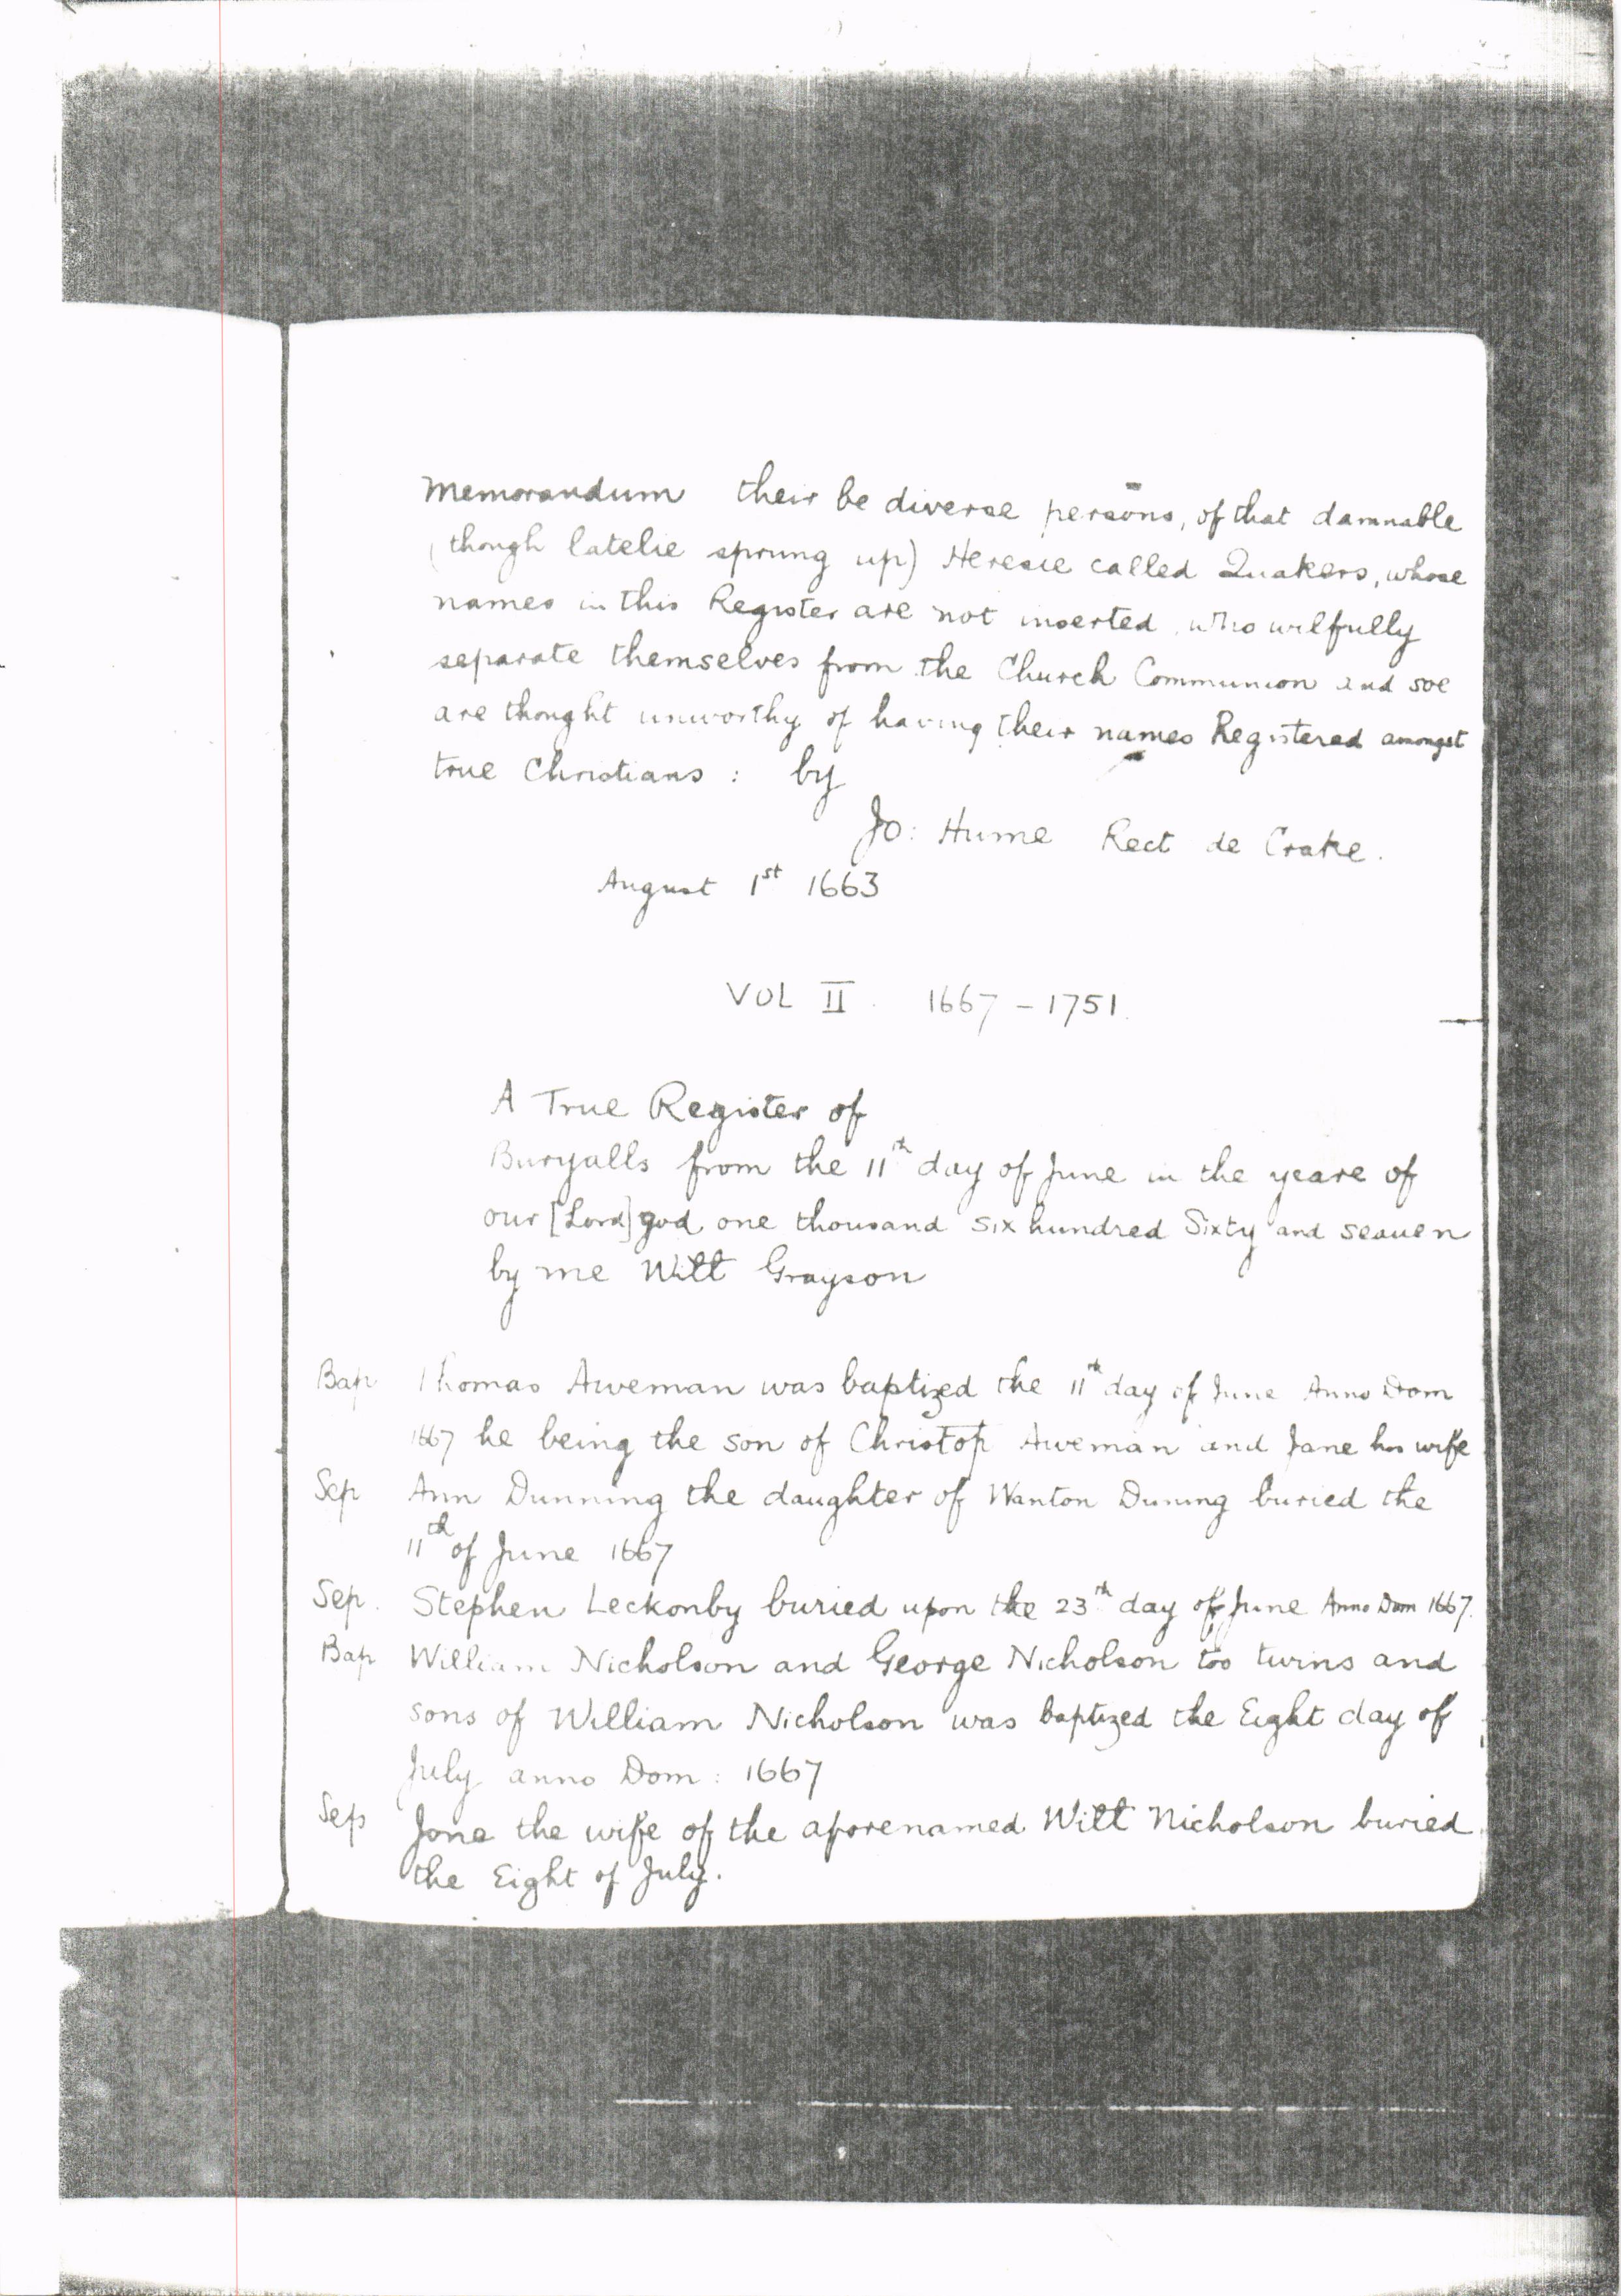 Memorandum their be diverse persons, of that damnable
(though latelie sprung up) Heresie called Quakers, whose
names in this Register are not inserted, who wilfully
separate themselves from the Church Communion and soe
are thought unworthy of having their names Registered amongst
true Christians : by
Jo: Hume Rect de Crake.
August 1st 1663
VOL II. 1667 - 1751.
A True Register of
Buryalls from the 11th day of June in the yeare of
our [Lord] god one thousand six hundred Sixty and seaven
by me Witt Grayson
Bap Thomas Aweman was baptized the 11th day of June Anno Dom
1667 he being the son of Christop Aweman and Jane his wife
Sep Ann Dunning the daughter of Wanton Duning buried the
11th of June 1667
Sep. Stephen Leckonby buried upon the 23th day of June Anno Dom 1667.
Bap William Nicholson and George Nicholson too twins and
sons of William Nicholson was baptized the Eight day of
July anno Dom : 1667
Sep Jone the wife of the aforenamed Witt Nicholson buried
the Eight of July.